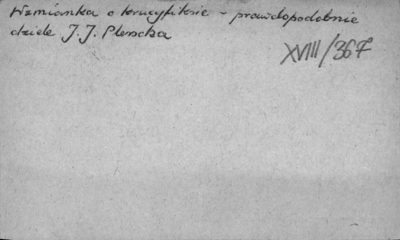 Wzmianka o krucyfiksie – prawdopodobnie
dziele J. J. Plerscha
XVIII/367